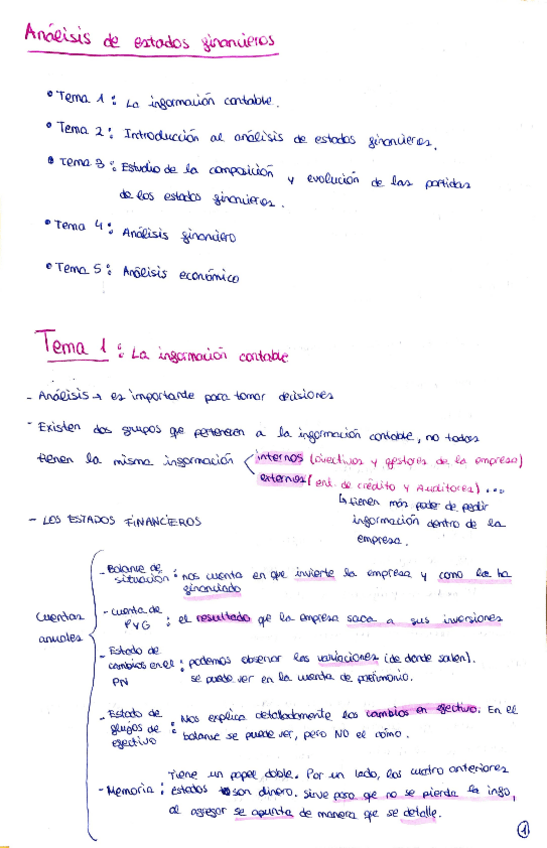 Análisis de estados financieros
• Tema 1: La información contable.
• Tema 2: Introducción al análisis de estados financieros.
• Tema 3: Estudio de la composición y evolución de las partidas
de los estados financieros.
• Tema 4: Análisis financiero
• Tema 5: Análisis económico
Tema 1: La información contable
- Análisis → es importante para tomar decisiones
- Existen dos grupos qe pertenecen a la información contable, no todos
tienen la misma información
internos (directivos y gestores de la empresa)
externos (ent. de crédito y Auditores)...
↳ tienen más poder de pedir
información dentro de la
empresa.
- LOS ESTADOS FINANCIEROS
Cuentas
anuales
- Balance de
situación: nos cuenta en qe invierte la empresa y como lo ha
financiado
- cuenta de
PyG: el resultado qe la empresa saca a sus inversiones
- Estado de
cambios en el
PN: podemos observar las variaciones (de donde salen).
se puede ver en la cuenta de patrimonio.
- Estado de
flujos de
efectivo: Nos explica detalladamente los cambios en efectivo. En el
balance se puede ver, pero NO el cómo.
- Memoria: Tiene un papel doble. Por un lado, los cuatro anteriores
estados son dinero. sirve para qe no se pierda la info,
al agregar se apunta de manera qe se detalle.
1